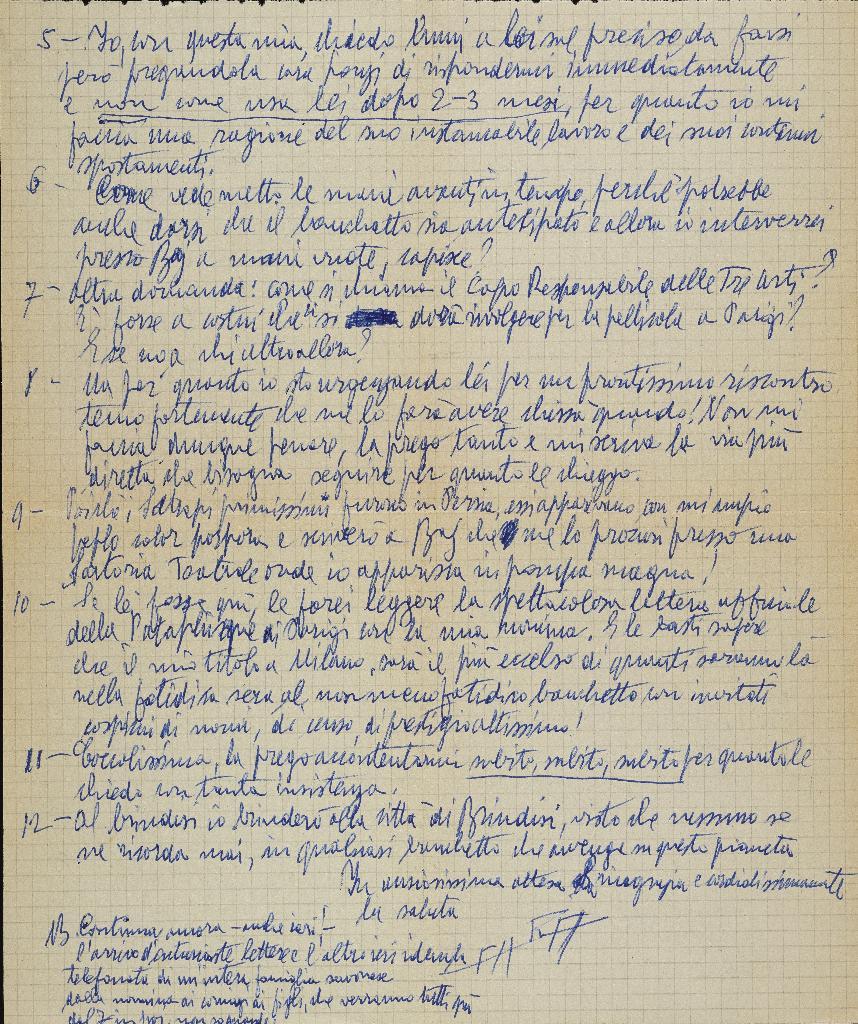 5 - Io, con questa mia, chiedo lumi a lei sul preciso da farsi
però pregandola cara di rispondermi immediatamente
e non come usa lei dopo 2-3 mesi, per quanto io mi
faccia una ragione del suo instancabile lavoro e dei suoi continui
spostamenti.
6 - Come vede metto le mani avanti in tempo, perché potrebbe
anche darsi che il banchetto sia anticipato e allora io interverrei
presso Baj a mani vuote, capisce?
7 - altra domanda: come si chiama il Capo Responsabile delle Tre Arti?
È forse a costui che si dovrà rivolgere per la pellicola a Parigi?
E se no a chi altro allora?
8 - Ma per quanto io sto urgenzando lei per un prontissimo riscontro
temo fortemente che me lo farà avere chissà quando! Non mi
faccia dunque penare, la prego tanto e mi scriva la via più
diretta che bisogna seguire per quanto le chieggo.
9 - Poiché i Satrapi primissimi furono in Persia, essi apparivano con un ampio
peplo color porpora e scriverò a Baj che me lo procuri presso una
Sartoria Teatrale onde io apparissa in pompa magna!
10 - Se lei fosse qui, le farei leggere la spettacolosa lettera ufficiale
della Pataphisque di Parigi con la mia nomina. E le basti sapere
che il mio titolo a Milano, sarà il più eccelso di quanti saranno là
nella fatidica sera al non meno fatidico banchetto con invitati
cospicui di nome, di censo, di prestigio altissimo!
11 - Coccolissima, la prego accontentarmi subito, subito, subito per quanto le
chiedo con tanta insistenza.
12 - Al brindisi io brinderò alla città di Brindisi, visto che nessuno se
ne ricorda mai, in qualsiasi banchetto che avvenga su questo pianeta
In ansiosissima attesa la ringrazio e cordialissimamente
la saluta
13 Continua ancora - anche ieri! -
l'arrivo d'entusiaste lettere e l'altro ieri
telefonata di un'intera famiglia savonese
dalla nonnina ai coniugi ai figli, che verranno tutti qui
dal 7 in poi, non